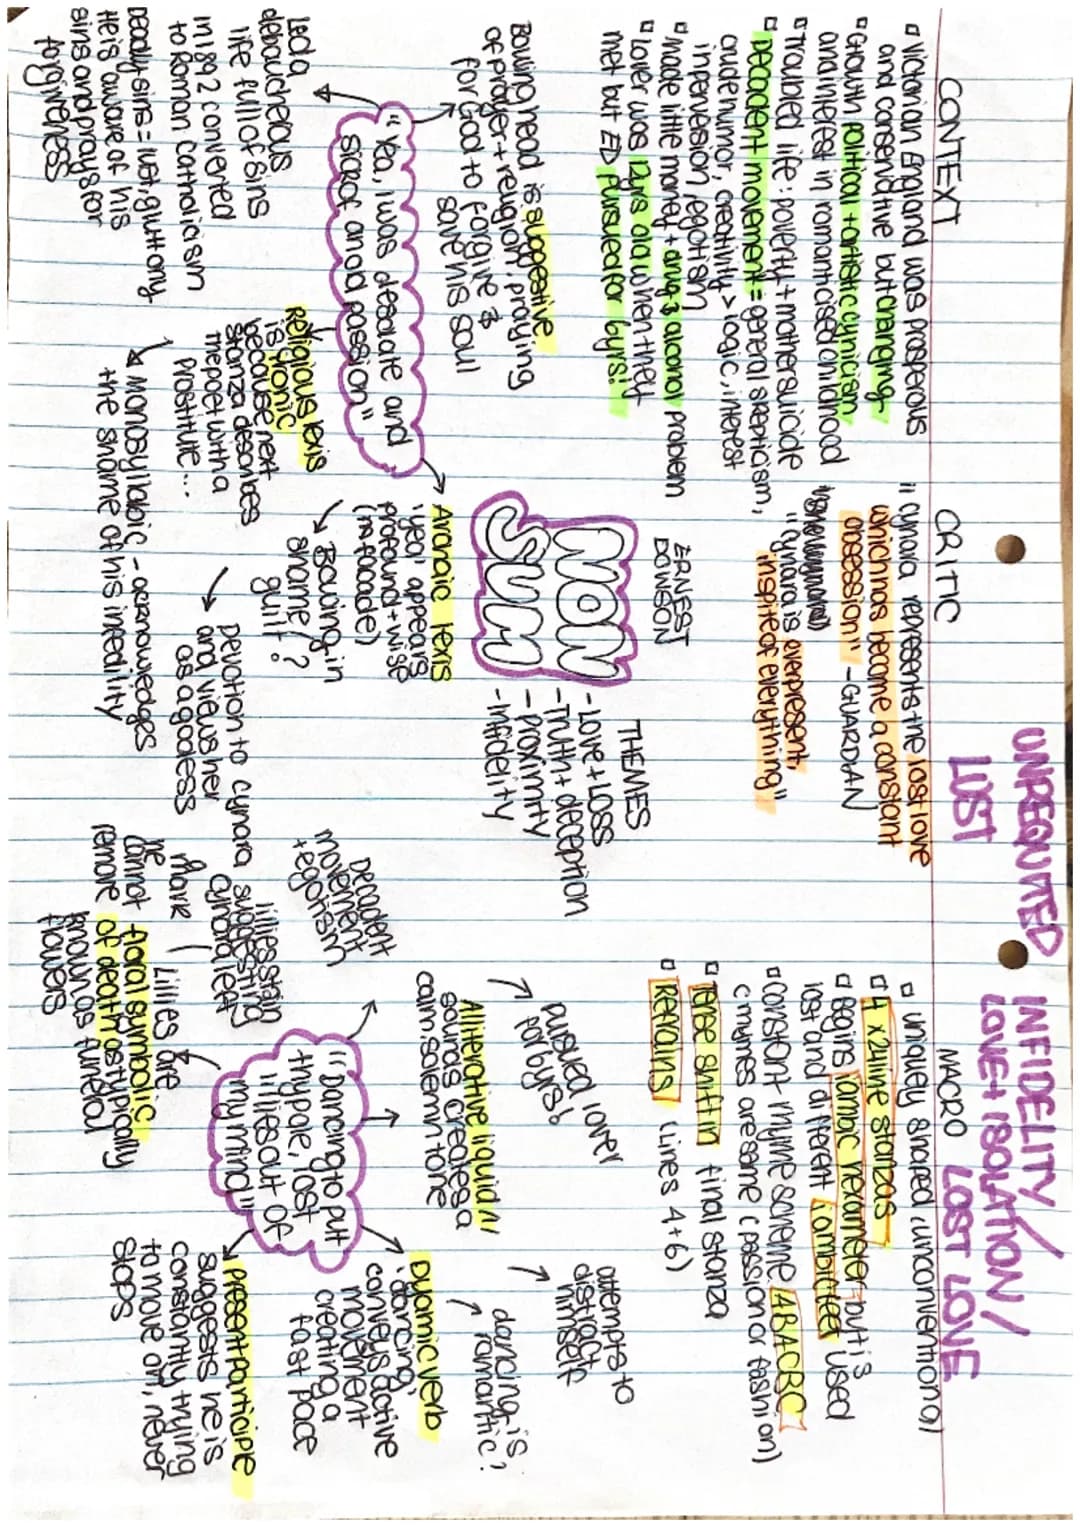 UNREQUITED
LUST
INFIDELITY/
LOVE + ISOLATION/
LOST LOVE
CONTEXT
Victorian England was prosperous
and conservative but changing
Growth political + artistic cynicism
and interest in romanticised childhood
Troubled life: poverty + mothers suicide
Decadent movement = general skepticism,
crude humor, creativity > logic, interest
in perversion, egotism
made little money + drug & alcohol problem
Lover was 12yrs old when they
met but ED pursued for 6yrs!
CRITIC
"Cynara represents the lost love
which has become a constant
obsession" - GUARDIAN
"Cynara is everpresent,
inspite of everything"
MACRO
uniquely shaped (unconventional)
4 x 24line stanzas
Begins iambic hexameter but is
lost and different iambic feet used
constant rhyme scheme ABACBC
C rhymes are same (passion or fashion)
Tense shift in final stanza
Refrains (lines 4+6)
ERNEST
DOWSON
NON
SUM
THEMES
- LOVE + LOSS
- Truth + deception
- proximity
- infidelity
Bowing head is suggestive
of prayer + religion: praying
for God to forgive &
save his soul
"Yea, I was desolate and
sick of an old passion"
Led a
debaucherous
life full of sins
in 1892 converted
to Roman Catholicism
Deadly sins = lust, gluttony
He is aware of his
sins and prays for
forgiveness
Religious lexis
is ironic
because next
stanza describes
the poet with a
prostitute...
Monosyllabic - acknowledges
the shame of his infedility
Archaic lexis
'yea' appears
profound + wise
(in facade)
Bowing in
shame?
guilt?
Devotion to Cynara
and views her
as a godess
pursued lover
for 6yrs!
Alliterative liquid 'l'
sounds creates a
calm solemn tone
Decadent
movement
+ egotism
"Dancing to put
thy pale, lost
lillies out of
my mind"
lillies stain
suggesting
Cynara left
mark
he
cannot
remove
Lillies are
floral symbolic
of death, as typically
known as funeral
flowers
attempts to
distract
himself
dancing is
romantic?
Dyamic verb
'dancing'
conveys active
movement
creating a
fast pace
Present participle
suggests he is
constantly trying
to move on, never
stops